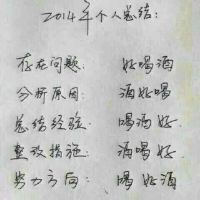 2014年个人总结:
存在问题: 好喝酒
分析原因: 酒好喝
总结经验: 喝酒好.
整改措施: 酒喝好.
努力方向: 喝好酒